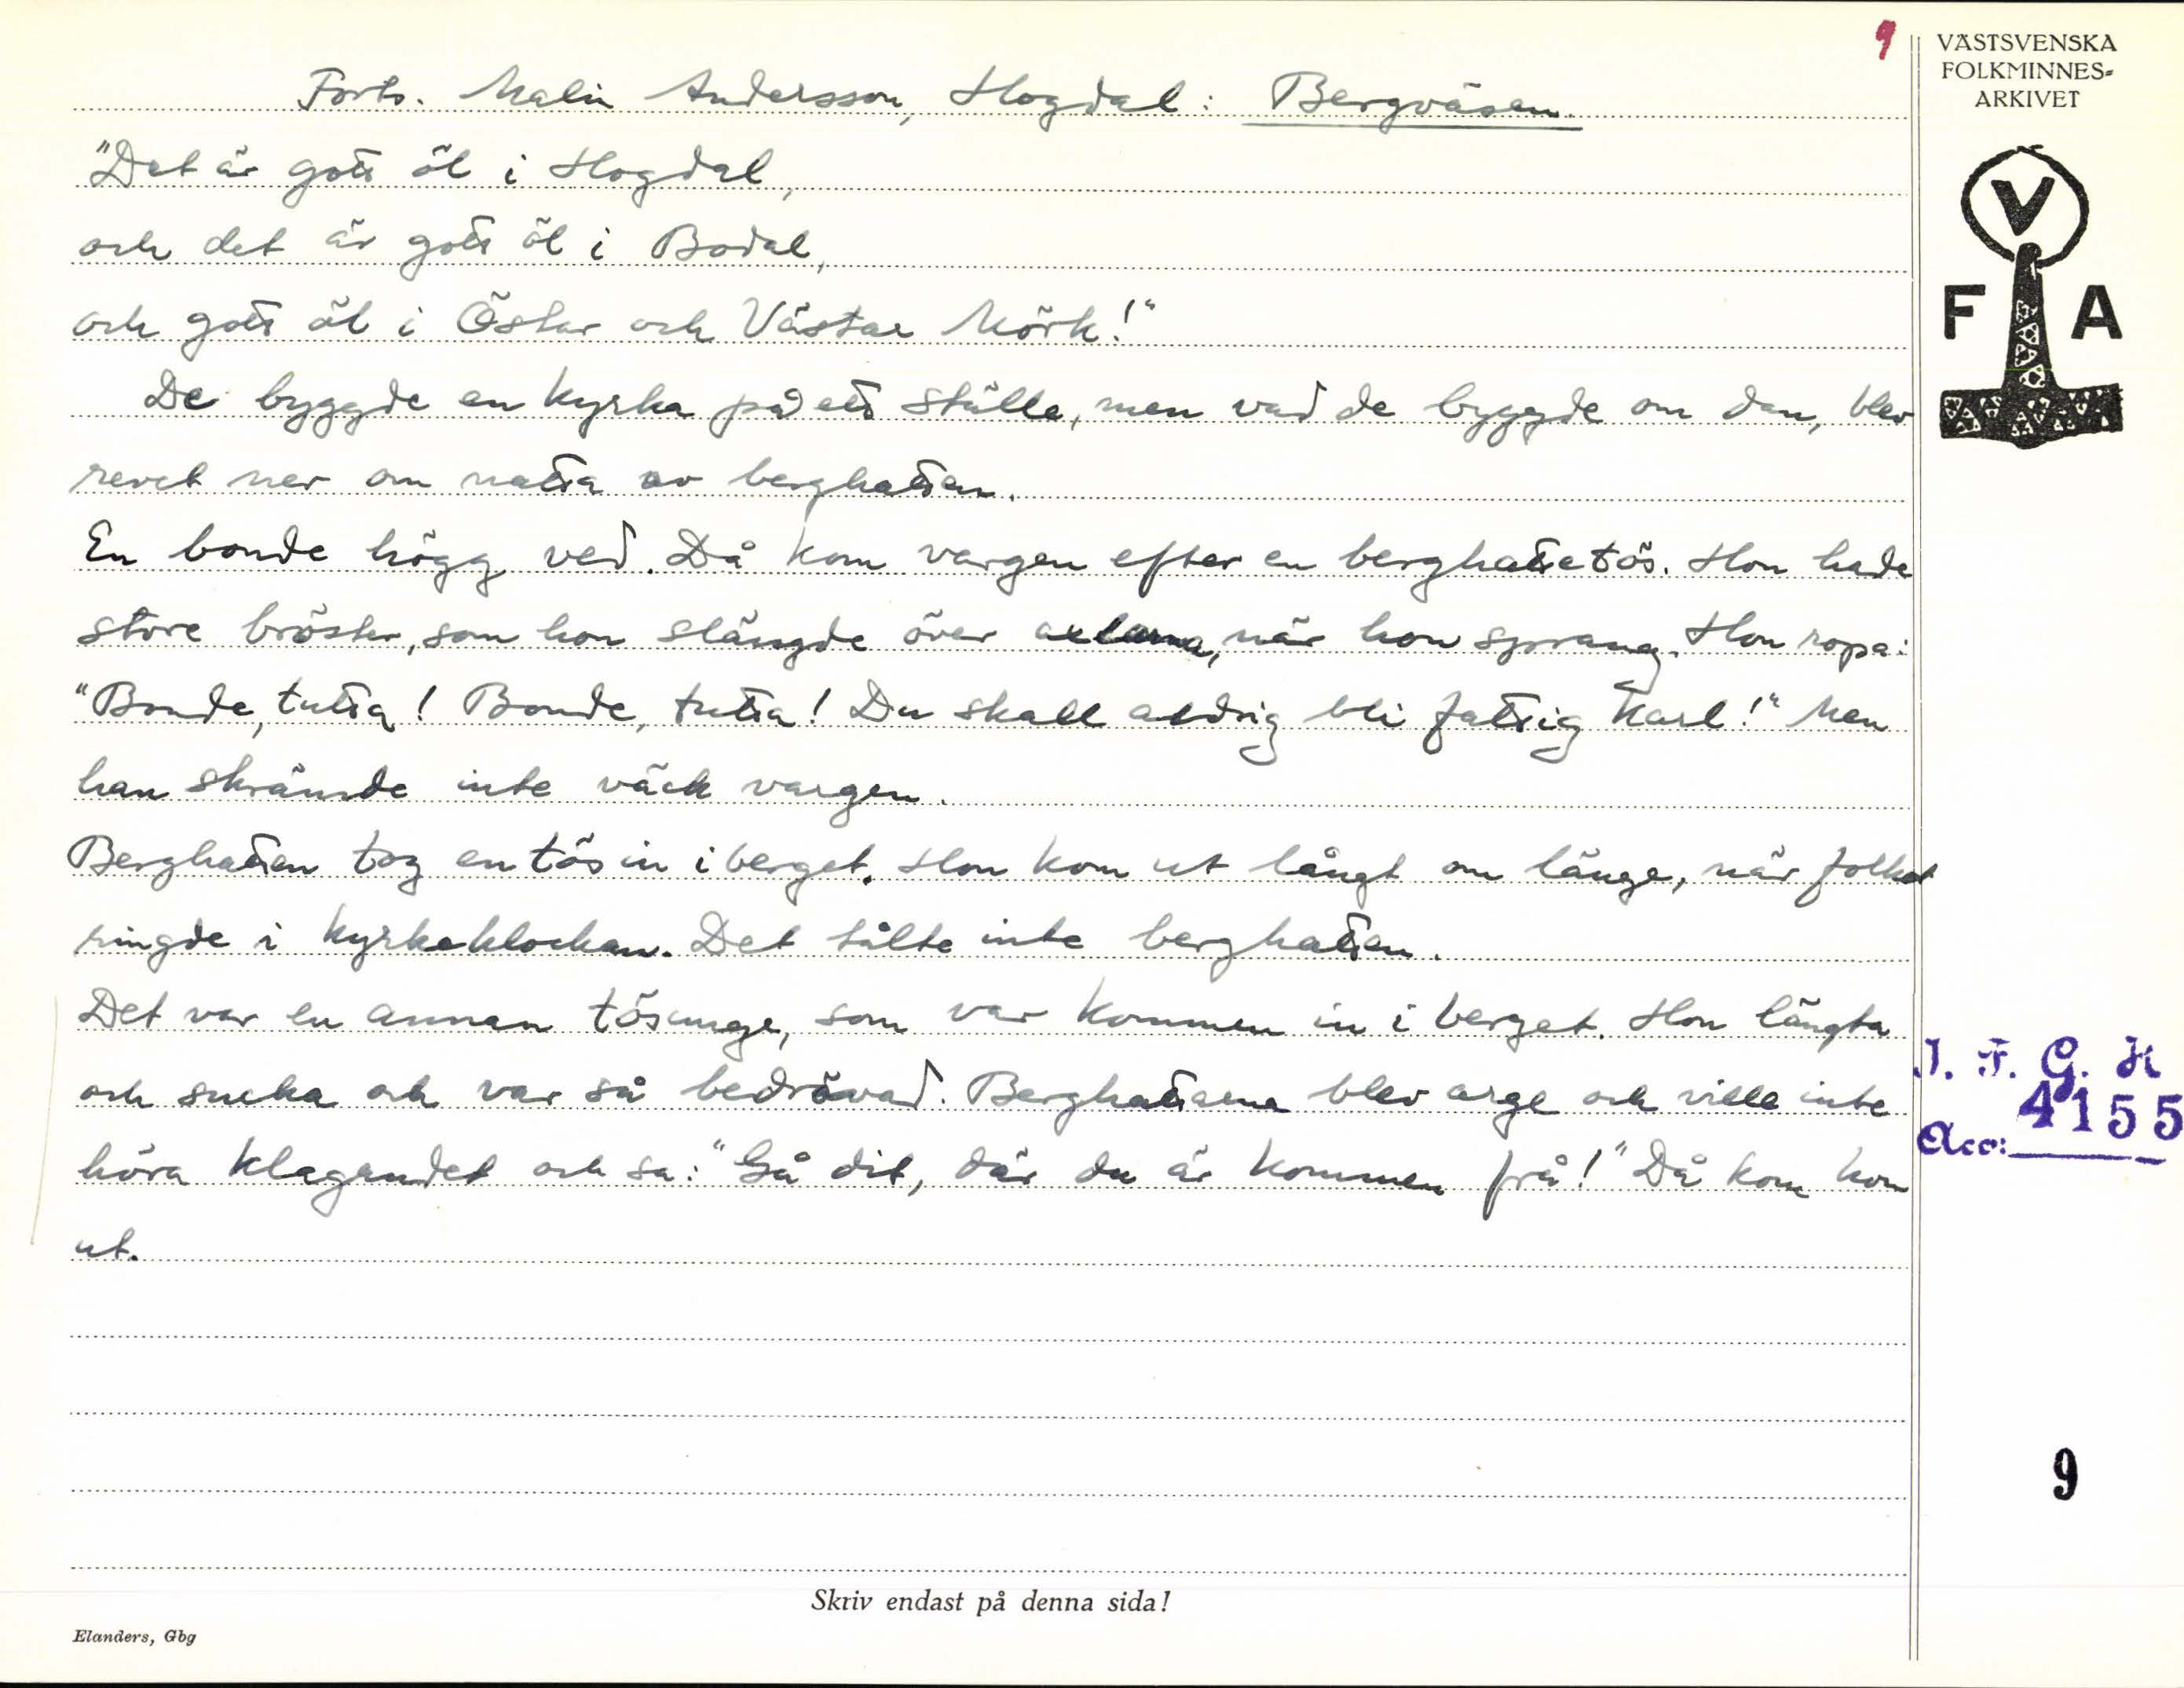 9
VÄSTSVENSKA
FOLKMINNES-
ARKIVET
Forts. Malin Andersson, Hogdal: Bergväsen.
"Det är gott öl i Hogdal,
och det är gott öl i Bodal,
och gott öl i Östar och Västar Mörk!"
V
F A
De byggde en kyrka på ett ställe, men vad de byggde om dan, blev
revet ner om natta av berghatten.
En bonde högg ved. Då kom vargen efter en berghattetös. Hon hade
store bröster, som hon slängde över axlarna, när hon sprang. Hon ropa:
"Bonde, tutta! Bonde, tutta! Du skall aldrig bli fattig karl!" Men
han skrämde inte väck vargen.
Berghatten tog en tös in i berget. Hon kom ut långt om länge, när folket
ringde i kyrkeklockan. Det tålte inte berghatten.
Det var en annan tösunge, som var kommen in i berget. Hon längta
och sucka och var så bedrövad. Berghattarna blev arge och ville inte
höra klagandet och sa: "Gå dit, där du är kommen frå!" Då kom hon
ut.
I. F. G. H
Acc: 4155
9
Skriv endast på denna sida!
Elanders, Gbg